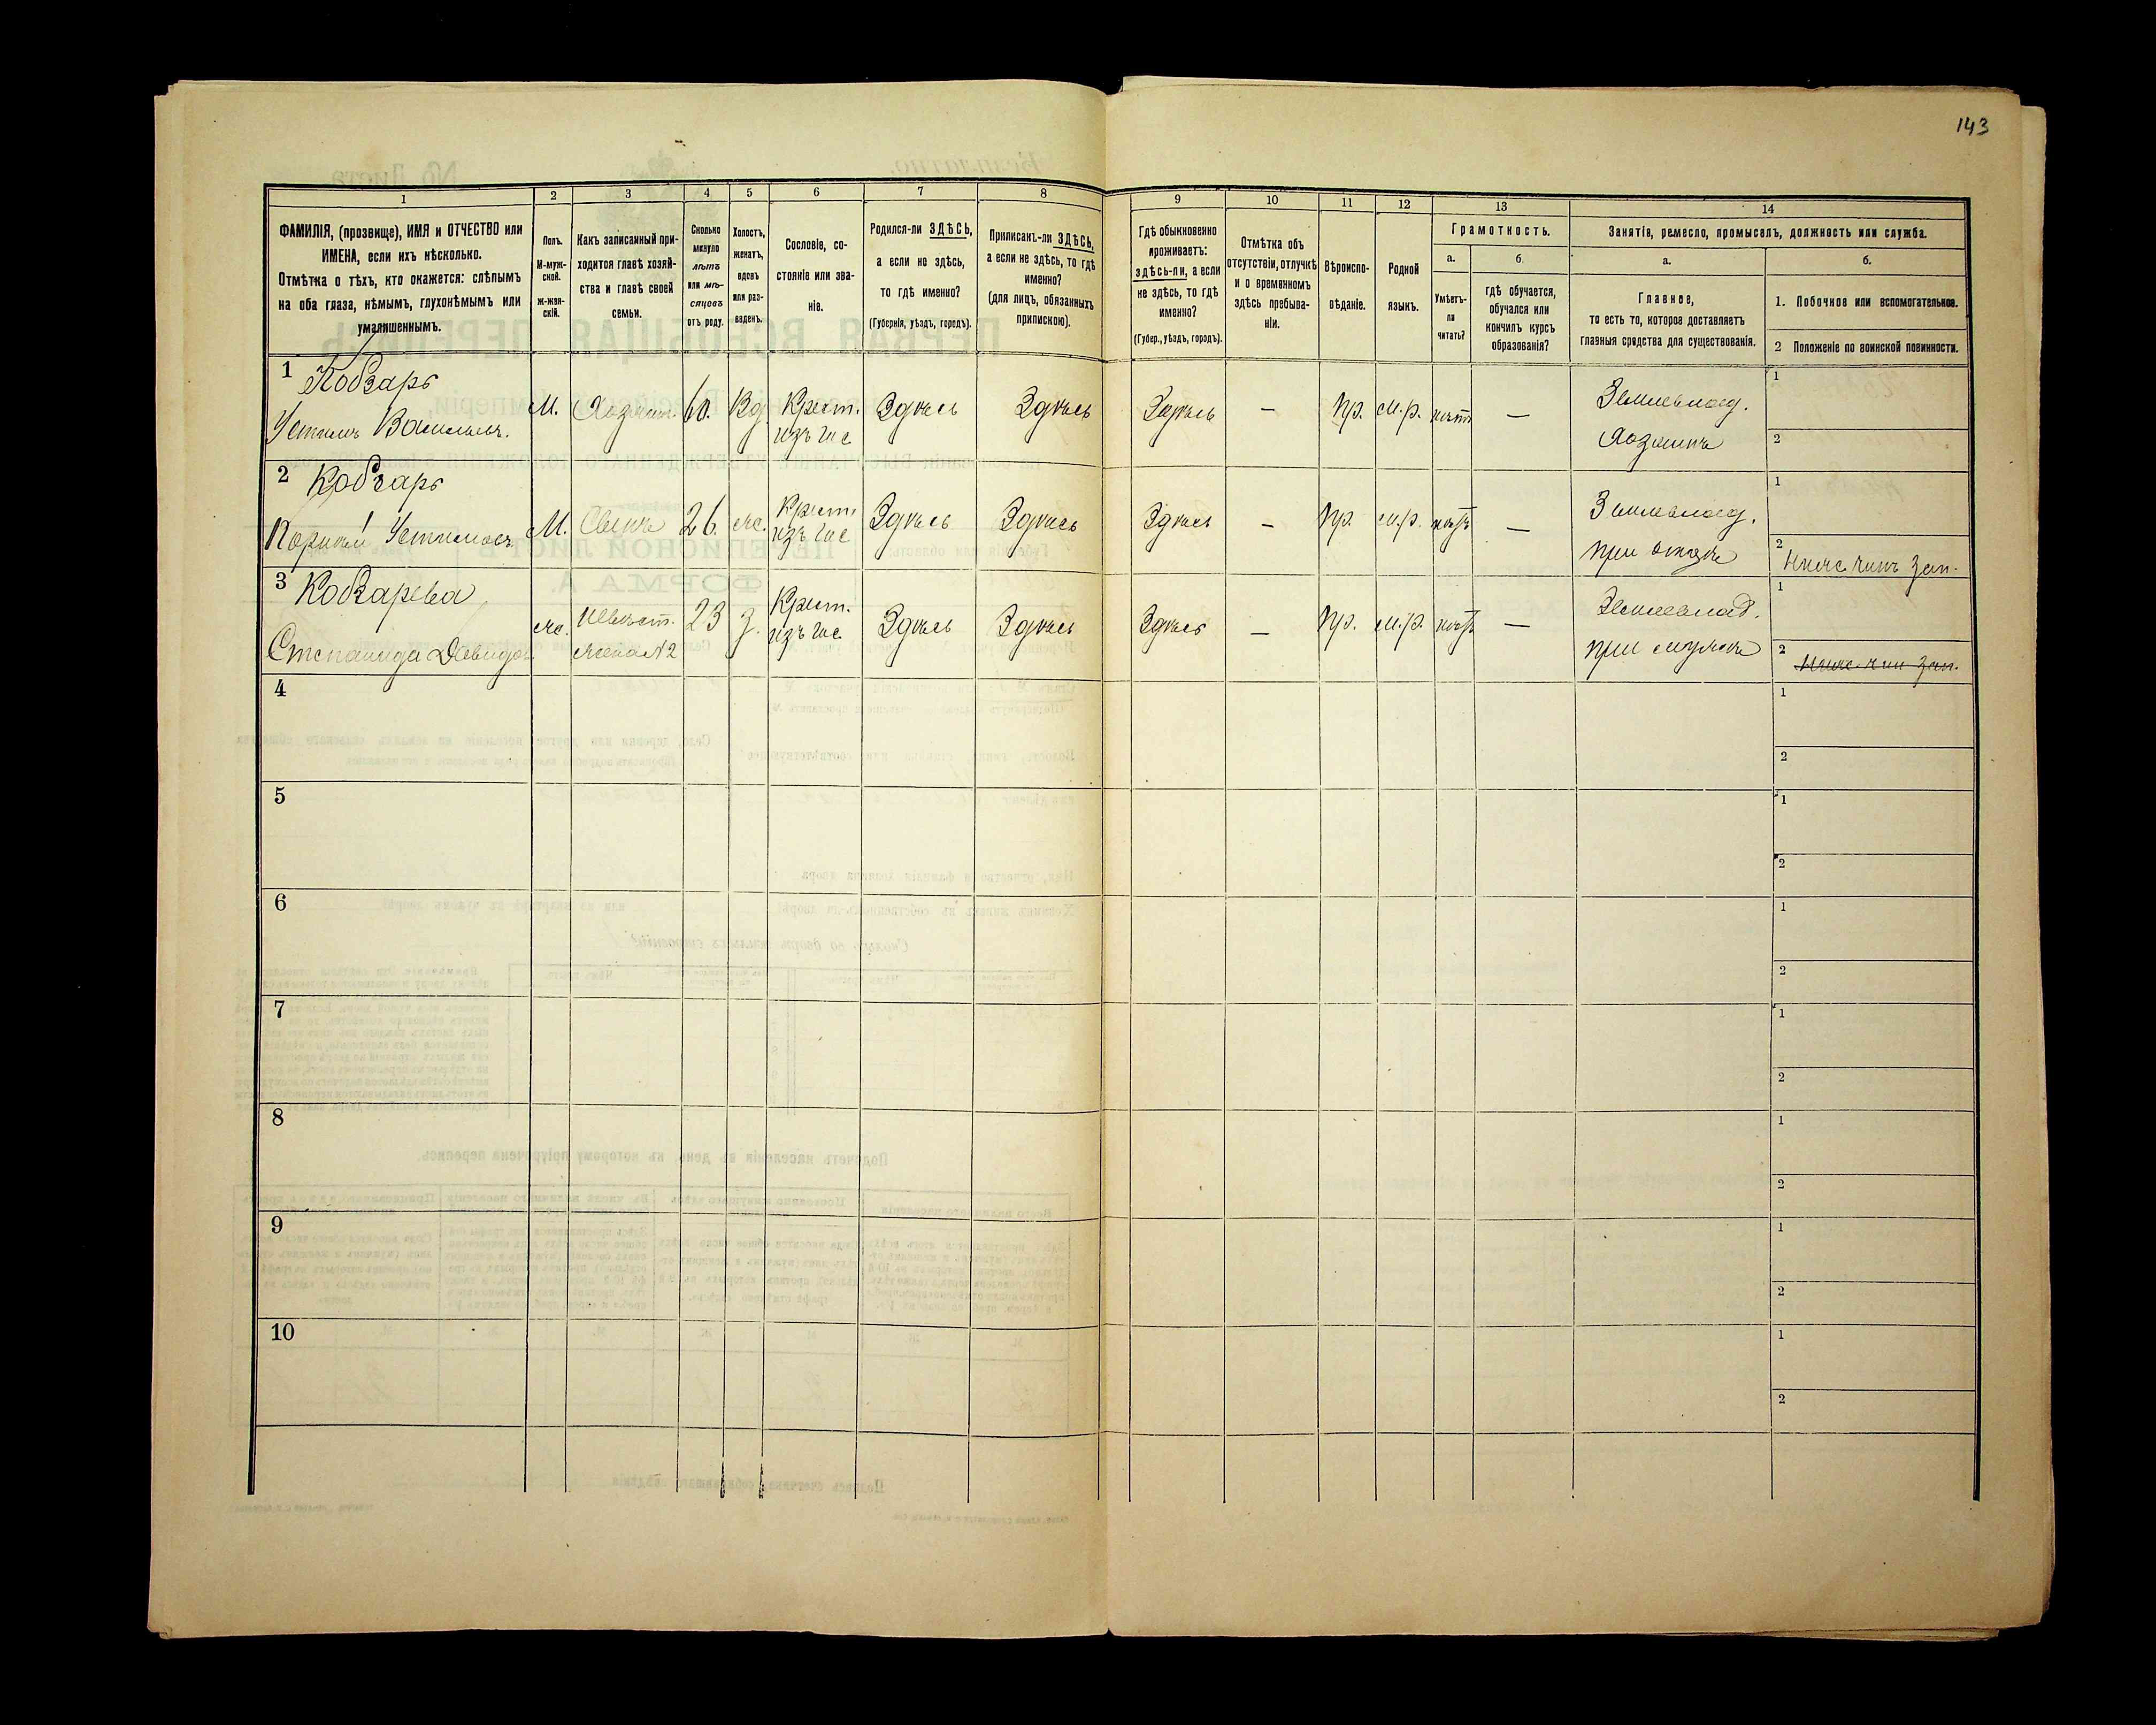 143
1
2
3
4
5
6
7
8
9
10
11
12
13
14
ФАМИЛІЯ, (прозвище), ИМЯ и ОТЧЕСТВО или
ИМЕНА, если ихъ нѣсколько.
Отмѣтка о тѣхъ, кто окажется: слѣпымъ
на оба глаза, нѣмымъ, глухонѣмымъ или
умалишеннымъ.
Полъ.
М-муж-
ской.
Ж-жен-
скій.
Какъ записанный при-
ходится главѣ хозяй-
ства и главѣ своей
семьи.
Сколько
минуло
лѣтъ
или мѣ-
сяцовъ
отъ роду.
Холостъ,
женатъ,
вдовъ
или раз-
веденъ.
Сословіе, со-
стояніе или зва-
ніе.
Родился-ли ЗДѢСЬ,
а если не здѣсь,
то гдѣ именно?
(Губернія, уѣздъ, городъ).
Приписанъ-ли ЗДѢСЬ,
а если не здѣсь, то гдѣ
именно?
(для лицъ, обязанныхъ
припискою).
Гдѣ обыкновенно
проживаетъ:
здѣсь-ли, а если
не здѣсь, то гдѣ
именно?
(Губер., уѣздъ, городъ).
Отмѣтка объ
отсутствіи, отлучкѣ
и о временномъ
здѣсь пребыва-
ніи.
Вѣроиспо-
вѣданіе.
Родной
языкъ.
Грамотность.
а.
Умѣетъ-
ли
читать?
б.
гдѣ обучается,
обучался или
кончилъ курсъ
образованія?
Занятіе, ремесло, промыселъ, должность или служба.
а.
Главное,
то есть то, которое доставляетъ
главныя средства для существованія.
б.
1. Побочное или вспомогательное.
2 Положеніе по воинской повинности.
1 Кобзарь
Устимъ Васильевъ. М. Хозяинъ 60. Вд. Крест. изъ гос Здѣсь Здѣсь Здѣсь — пр. м.р. нѣтъ — Землевлад. Хозяинъ 1 2
2 Кобзарь
Корній Устимовъ М. Сынъ 26. ж. Крест. изъ гос Здѣсь Здѣсь Здѣсь — пр. м.р. нѣтъ — Землевлад. при отцѣ 1 2 Нижн. чинъ зап.
3 Кобзарева
Степанида Давидов ж. Невѣст. жена №2 23 з. Крест. изъ гос. Здѣсь Здѣсь Здѣсь — пр. м.р. нѣтъ — Землевлад. при мужѣ 1 2 Нижн. чин зап.
4 1 2
5 1 2
6 1 2
7 1 2
8 1 2
9 1 2
10 1 2